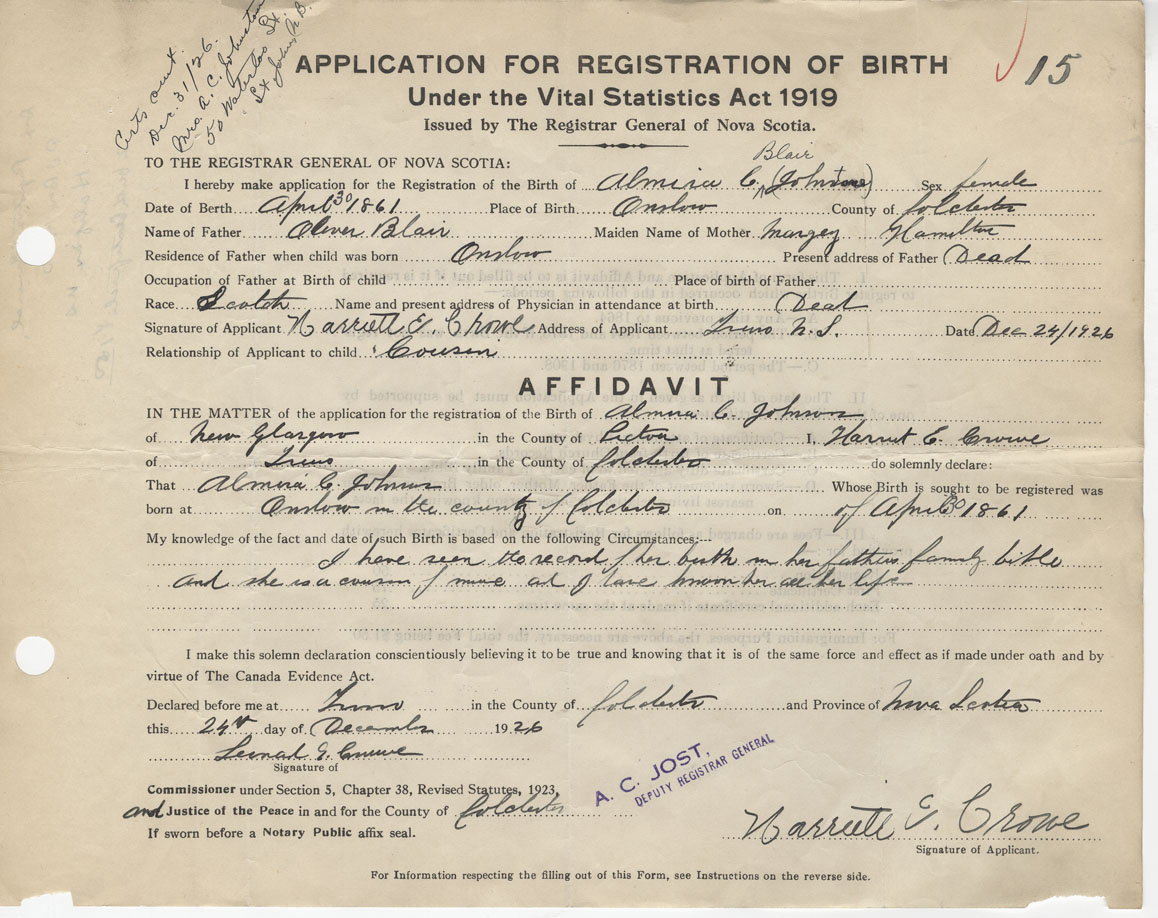 Certs sent.
Dec. 31/26.
Mrs. A. C. Johnston
50 Waterloo St.
St John, N.B.
15
APPLICATION FOR REGISTRATION OF BIRTH
Under the Vital Statistics Act 1919
Issued by The Registrar General of Nova Scotia.
TO THE REGISTRAR GENERAL OF NOVA SCOTIA:
Blair
I hereby make application for the Registration of the Birth of Almira C. (Johnstone) Sex female
Date of Berth April 30 1861 Place of Birth Onslow County of Colchester
Name of Father Oliver Blair Maiden Name of Mother Margey Hamilton
Residence of Father when child was born Onslow Present address of Father Dead
Occupation of Father at Birth of child Place of birth of Father
Race Scotch Name and present address of Physician in attendance at birth Deat
Signature of Applicant Harriett E. Crowe Address of Applicant Truro N.S. Date Dec 24/1926
Relationship of Applicant to child Cousin
AFFIDAVIT
IN THE MATTER of the application for the registration of the Birth of Almira C. Johnson
of New Glasgow in the County of Pictou I, Harriet E. Crowe
of Truro in the County of Colchester do solemnly declare:
That Almira C. Johnson Whose Birth is sought to be registered was
born at Onslow in the county of Colchester on of April 30 1861
My knowledge of the fact and date of such Birth is based on the following Circumstances:---
I have seen the record of her birth in her fathers family bible
and she is a cousin of mine and I have known her all her life
I make this solemn declaration conscientiously believing it to be true and knowing that it is of the same force and effect as if made under oath and by
virtue of The Canada Evidence Act.
Declared before me at Truro in the County of Colchester and Province of Nova Scotia
this 24th day of December 1926
Signature of
Commissioner under Section 5, Chapter 38, Revised Statutes, 1923,
and Justice of the Peace in and for the County of Colchester
If sworn before a Notary Public affix seal.
A. C. JOST,
DEPUTY REGISTRAR GENERAL
Harriett E. Crowe
Signature of Applicant.
For Information respecting the filling out of this Form, see Instructions on the reverse side.